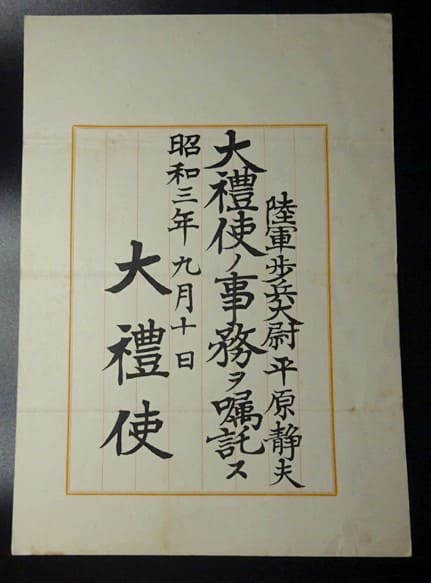 陸軍歩兵大尉平原静夫
大禮使ノ事務ヲ嘱託ス
昭和三年九月十日
大禮使